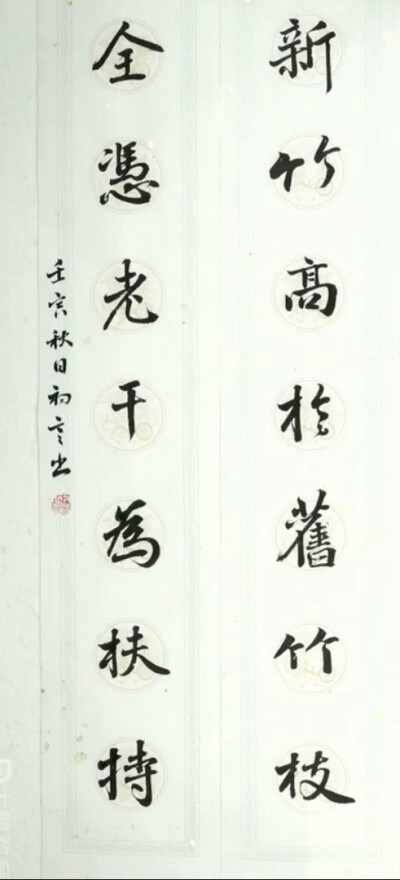 新竹高於舊竹枝
全憑老干為扶持
壬寅秋日初言书